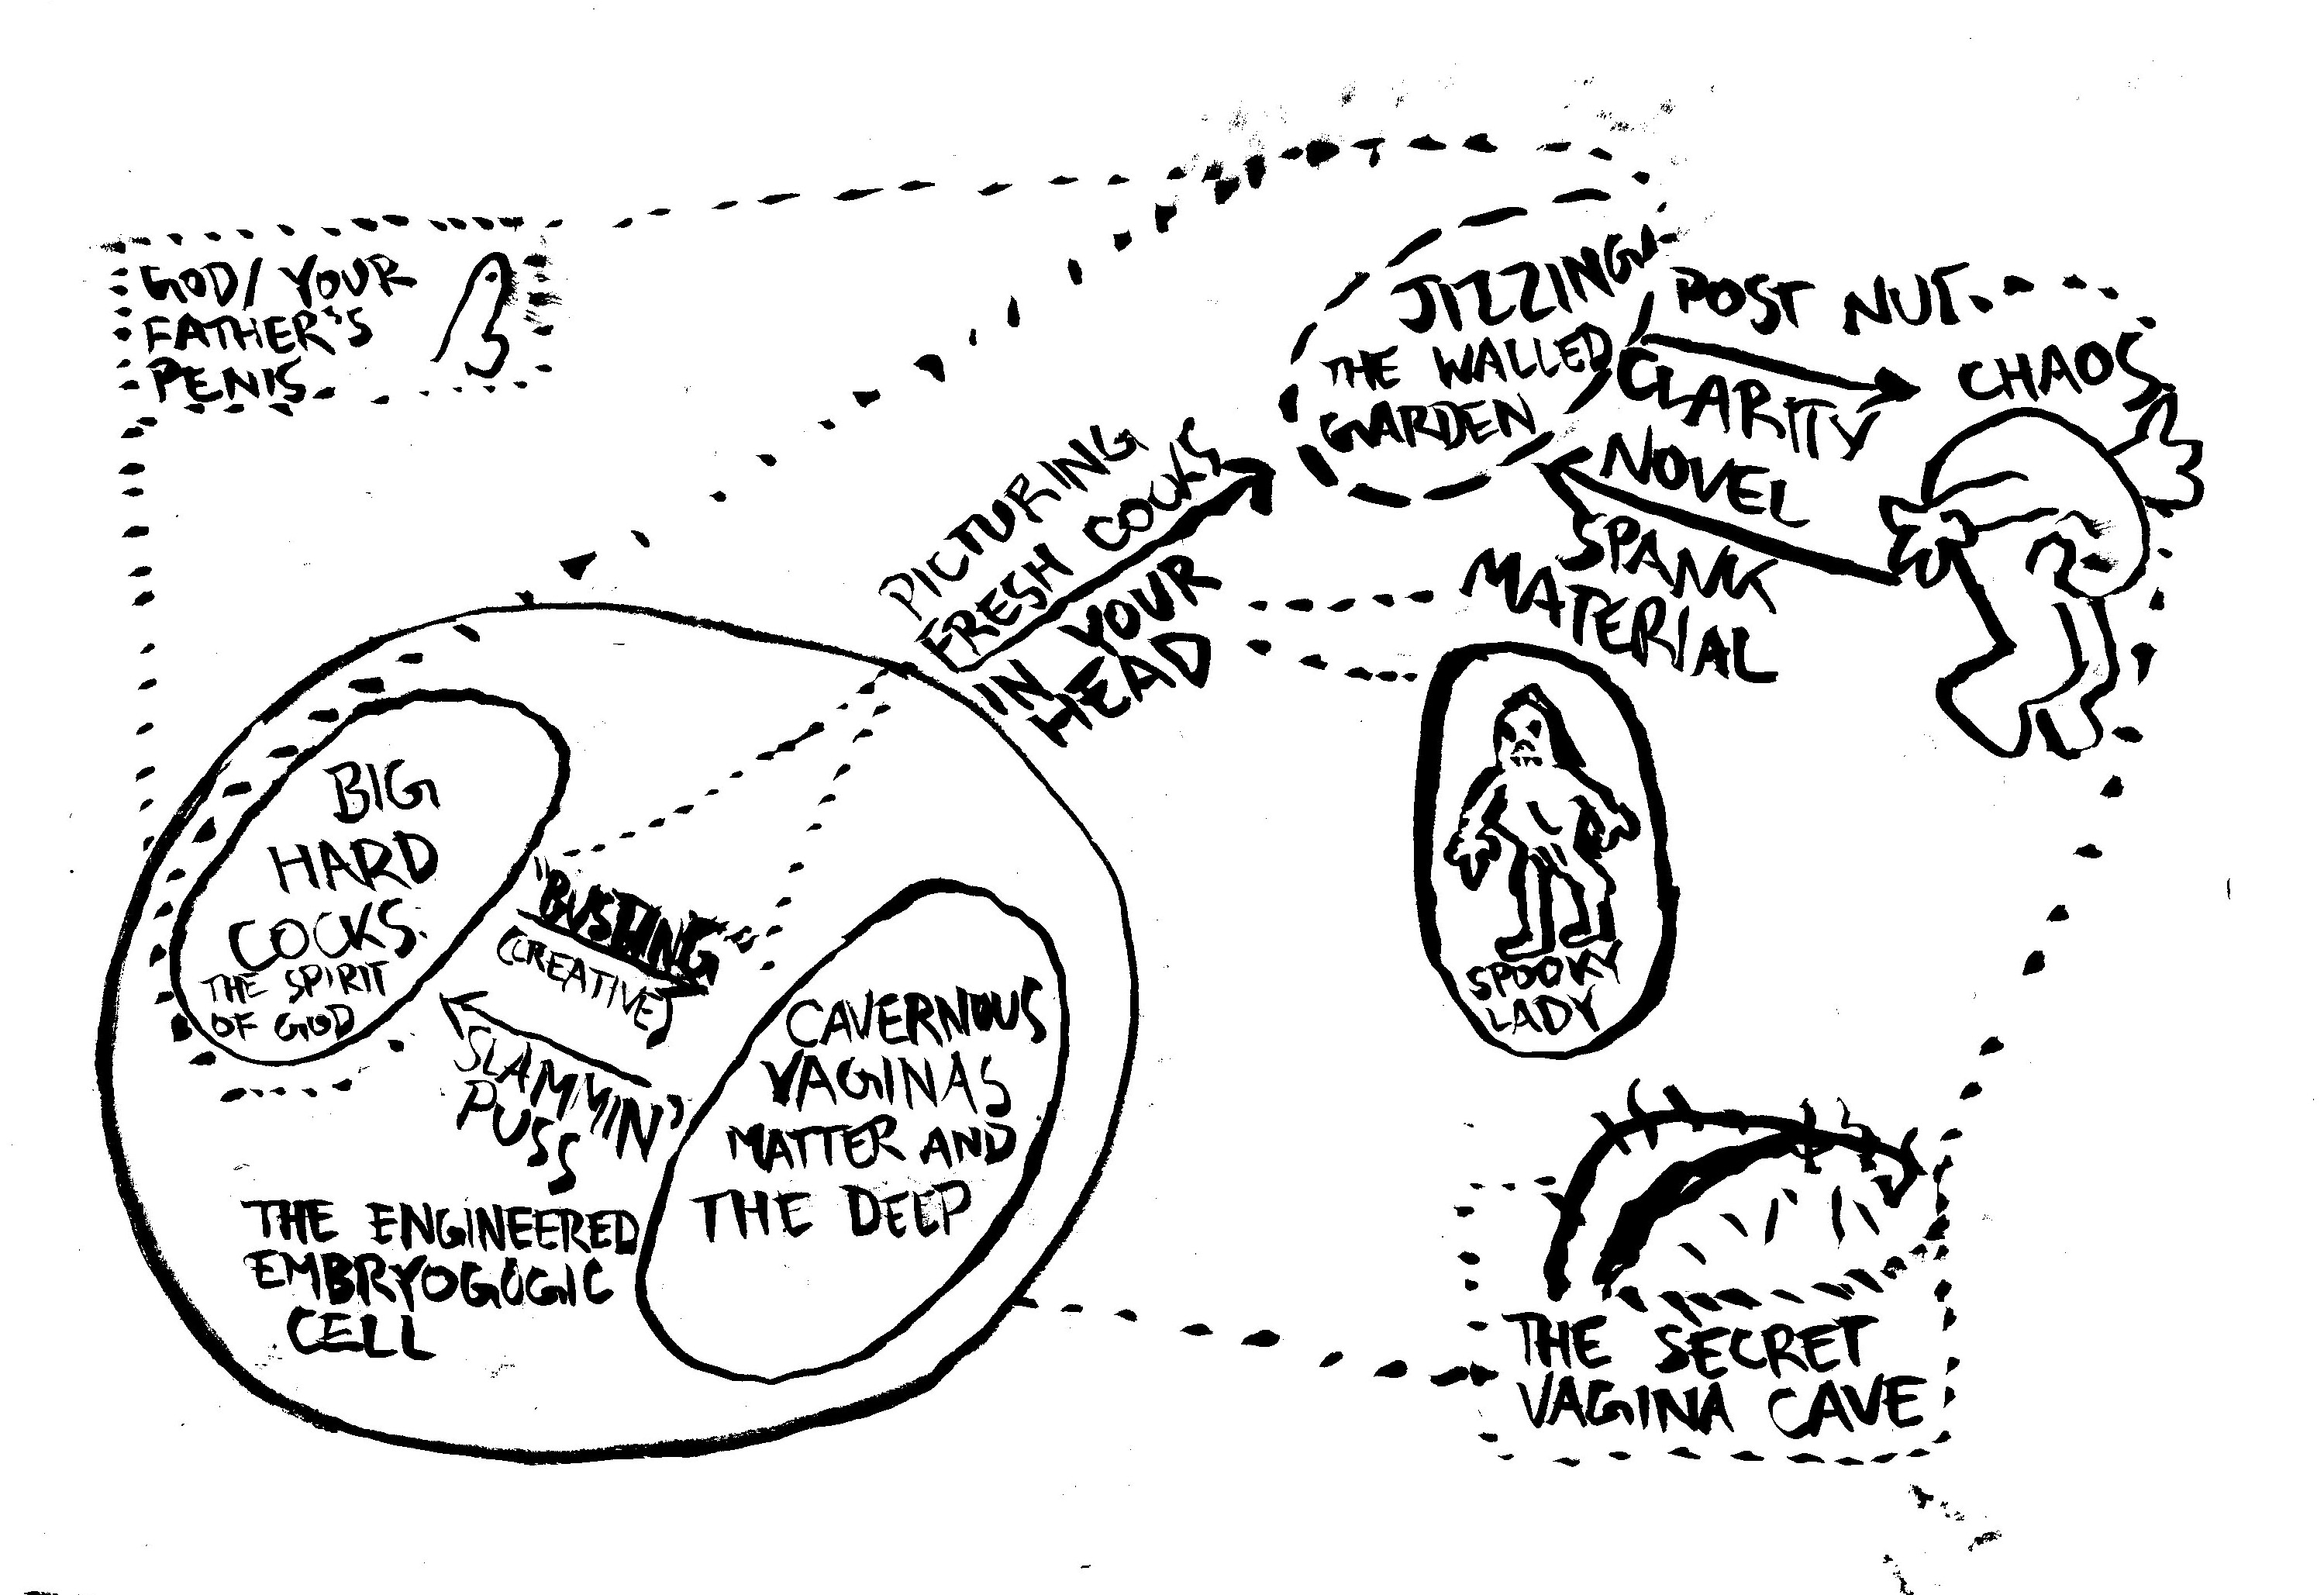 GOD/ YOUR
FATHER'S
PENIS
JIZZING
THE WALLED
GARDEN
POST NUT
CLARITY
CHAOS
NOVEL
SPANK
MATERIAL
PICTURING
FRESH COCKS
IN YOUR
HEAD
BIG
HARD
COCKS
THE SPIRIT
OF GOD
"BUSTING"
(CREATIVE)
SLAMMIN'
PUSS
CAVERNOUS
VAGINAS
MATTER AND
THE DEEP
THE ENGINEERED
EMBRYOGOGIC
CELL
SPOOKY
LADY
THE SECRET
VAGINA CAVE